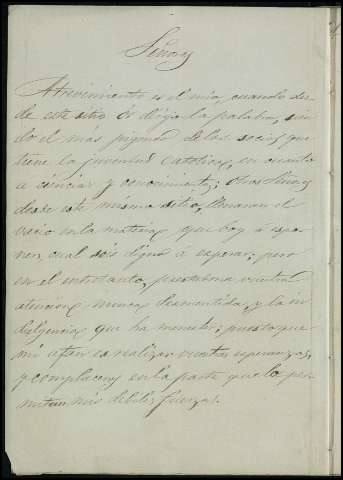 Señores
Atrevimiento es el mio, cuando des-
de este sitio os dirijo la palabra, sien-
do el más pigmeo de los socios que
tiene la juventud Catolica, en cuanto
a ciencias y conocimientos; otros Señores
desde este mismo sitio, llenaran el
vacio en la materia que hoy á espo-
ner, cual sois dignos á esperar; pero
en el entretanto, prestadme vuestra
atencion nunca desmentida, y la in-
dulgencia que ha menester; puesto que
mi afan es realizar vuestras esperanzas,
y complaceros en la parte que lo per-
mitan mis debiles fuerzas.